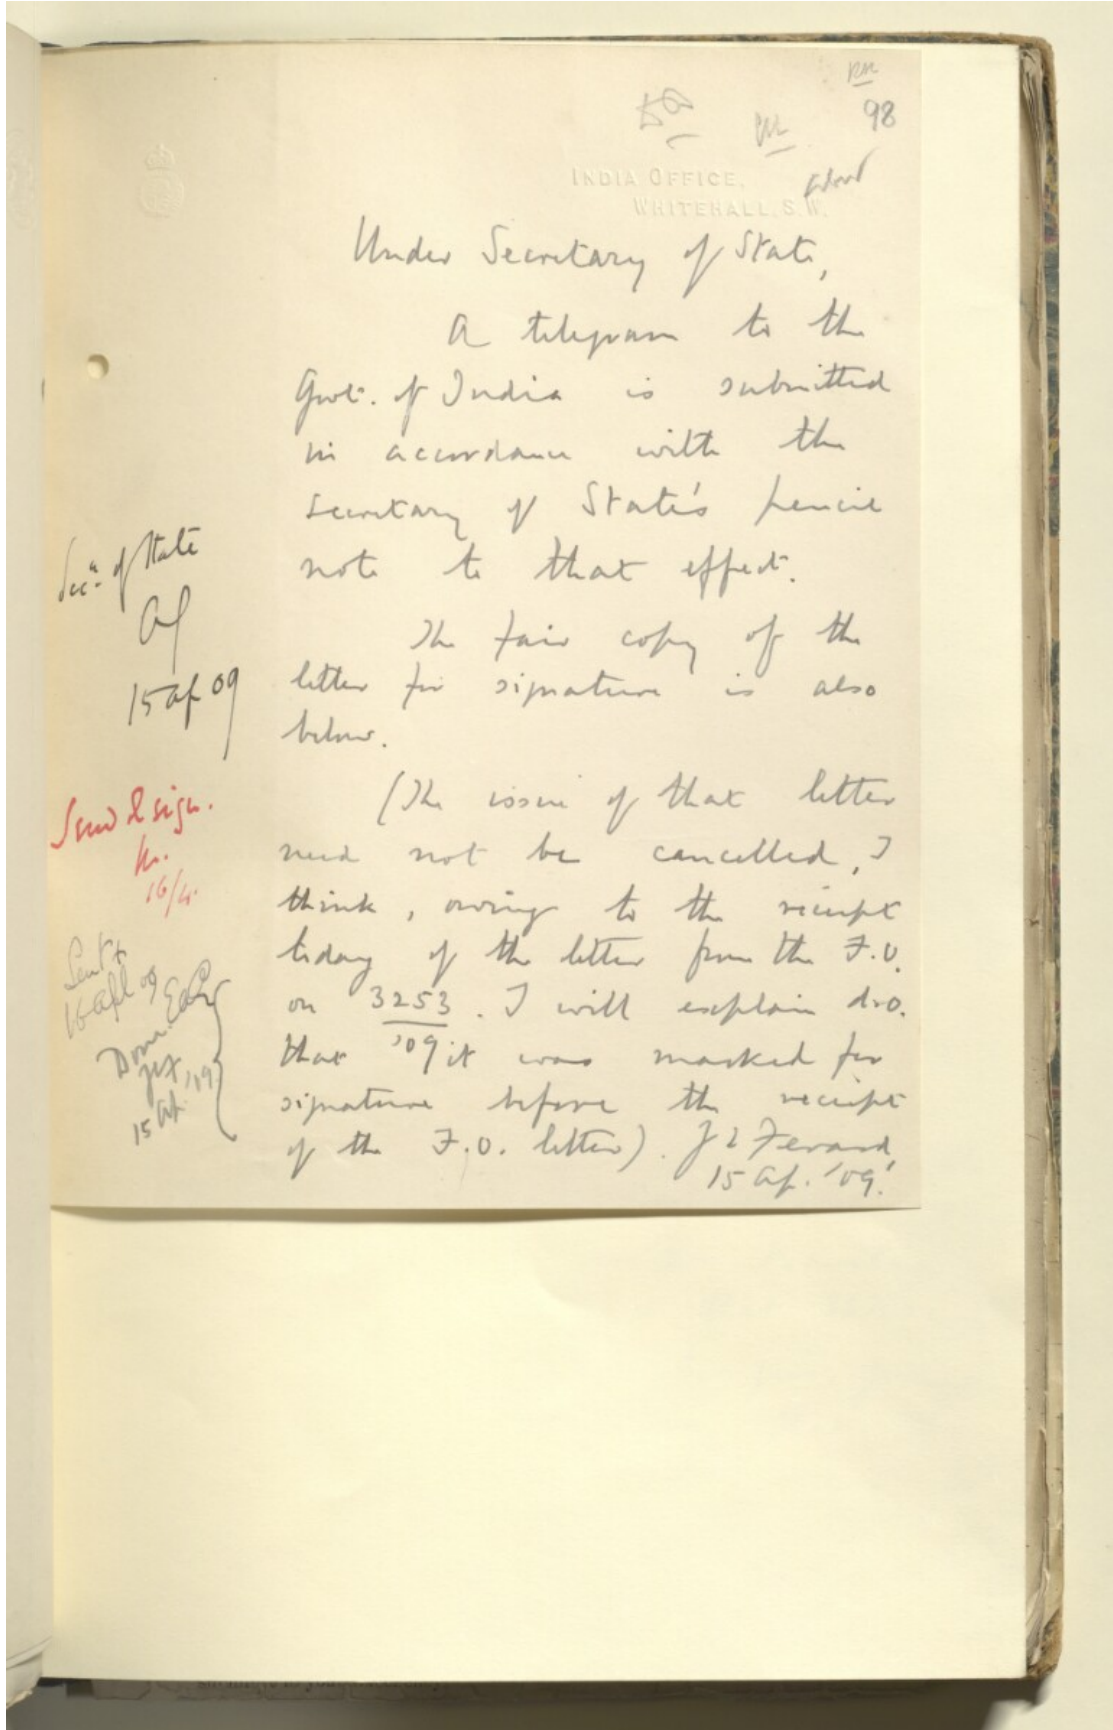 98
INDIA OFFICE,
WHITEHALL. S.W.
Under Secretary of State,
A telegram to the
Govt. of India is submitted
in accordance with the
Secretary of State's pencil
note to that effect.
The fair copy of the
letter for signature is also
below.
(The issue of that letter
need not be cancelled, I
think, owing to the receipt
today of the letter from the F.O.
on 3253/'09. I will explain d.o.
that it was marked for
signature before the receipt
of the F.O. letter). J L Ferard
15 Ap. '09.
Secy. of State
15 Ap 09
Send & sign.
M.
16/4.
Sent
16 Apl 09
Done
15 Ap.